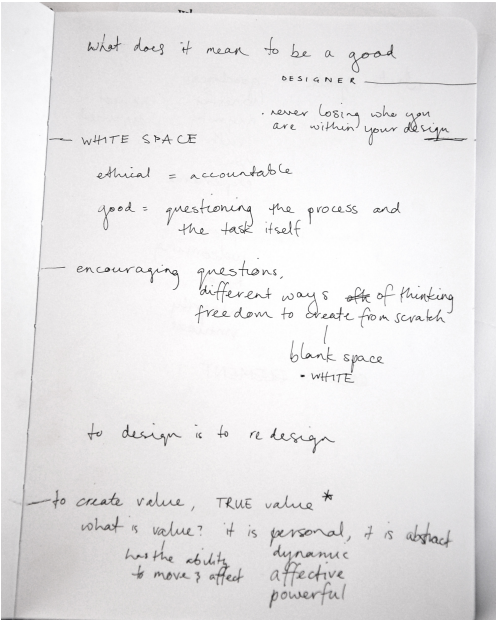 what does it mean to be a good
DESIGNER
· never losing who you
are within your design
— WHITE SPACE
ethical = accountable
good = questioning the process and
the task itself
— encouraging questions,
different ways of thinking
freedom to create from scratch
blank space
• WHITE
to design is to redesign
— to create value, TRUE value *
what is value? it is personal, it is abstract
has the ability dynamic
to move & affect affective
powerful